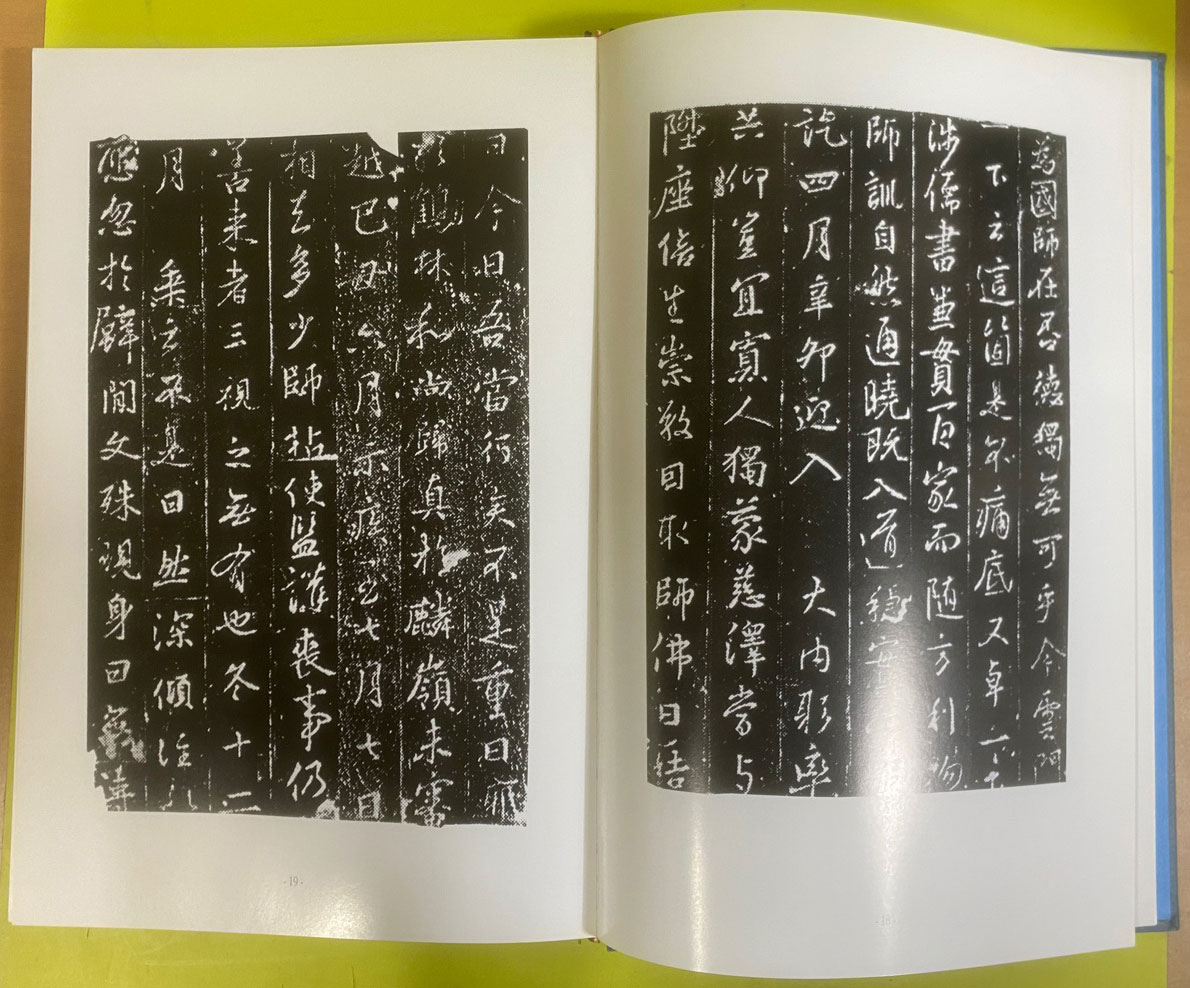 為國師在否德獨無可乎今雲
一下云這箇是不痛底又卓一下
涉儒書兼貫百家而随方利物
師訓自然通曉既入道穩
訖四月辛卯迎入 大内躬率
共仰豈宜寡人獨蒙慈澤當与
陞座倍生崇敬因取師佛日結
日今日吾當行矣不是重日
鶴林和尚歸真於麟嶺未審
越己丑六月示疾至七月七日
相去多少師拈使監護喪事仍
善来者三視之無有也冬十二
月 乘之不是曰然深傾注
應忽於壁間文殊現身曰無
-19-